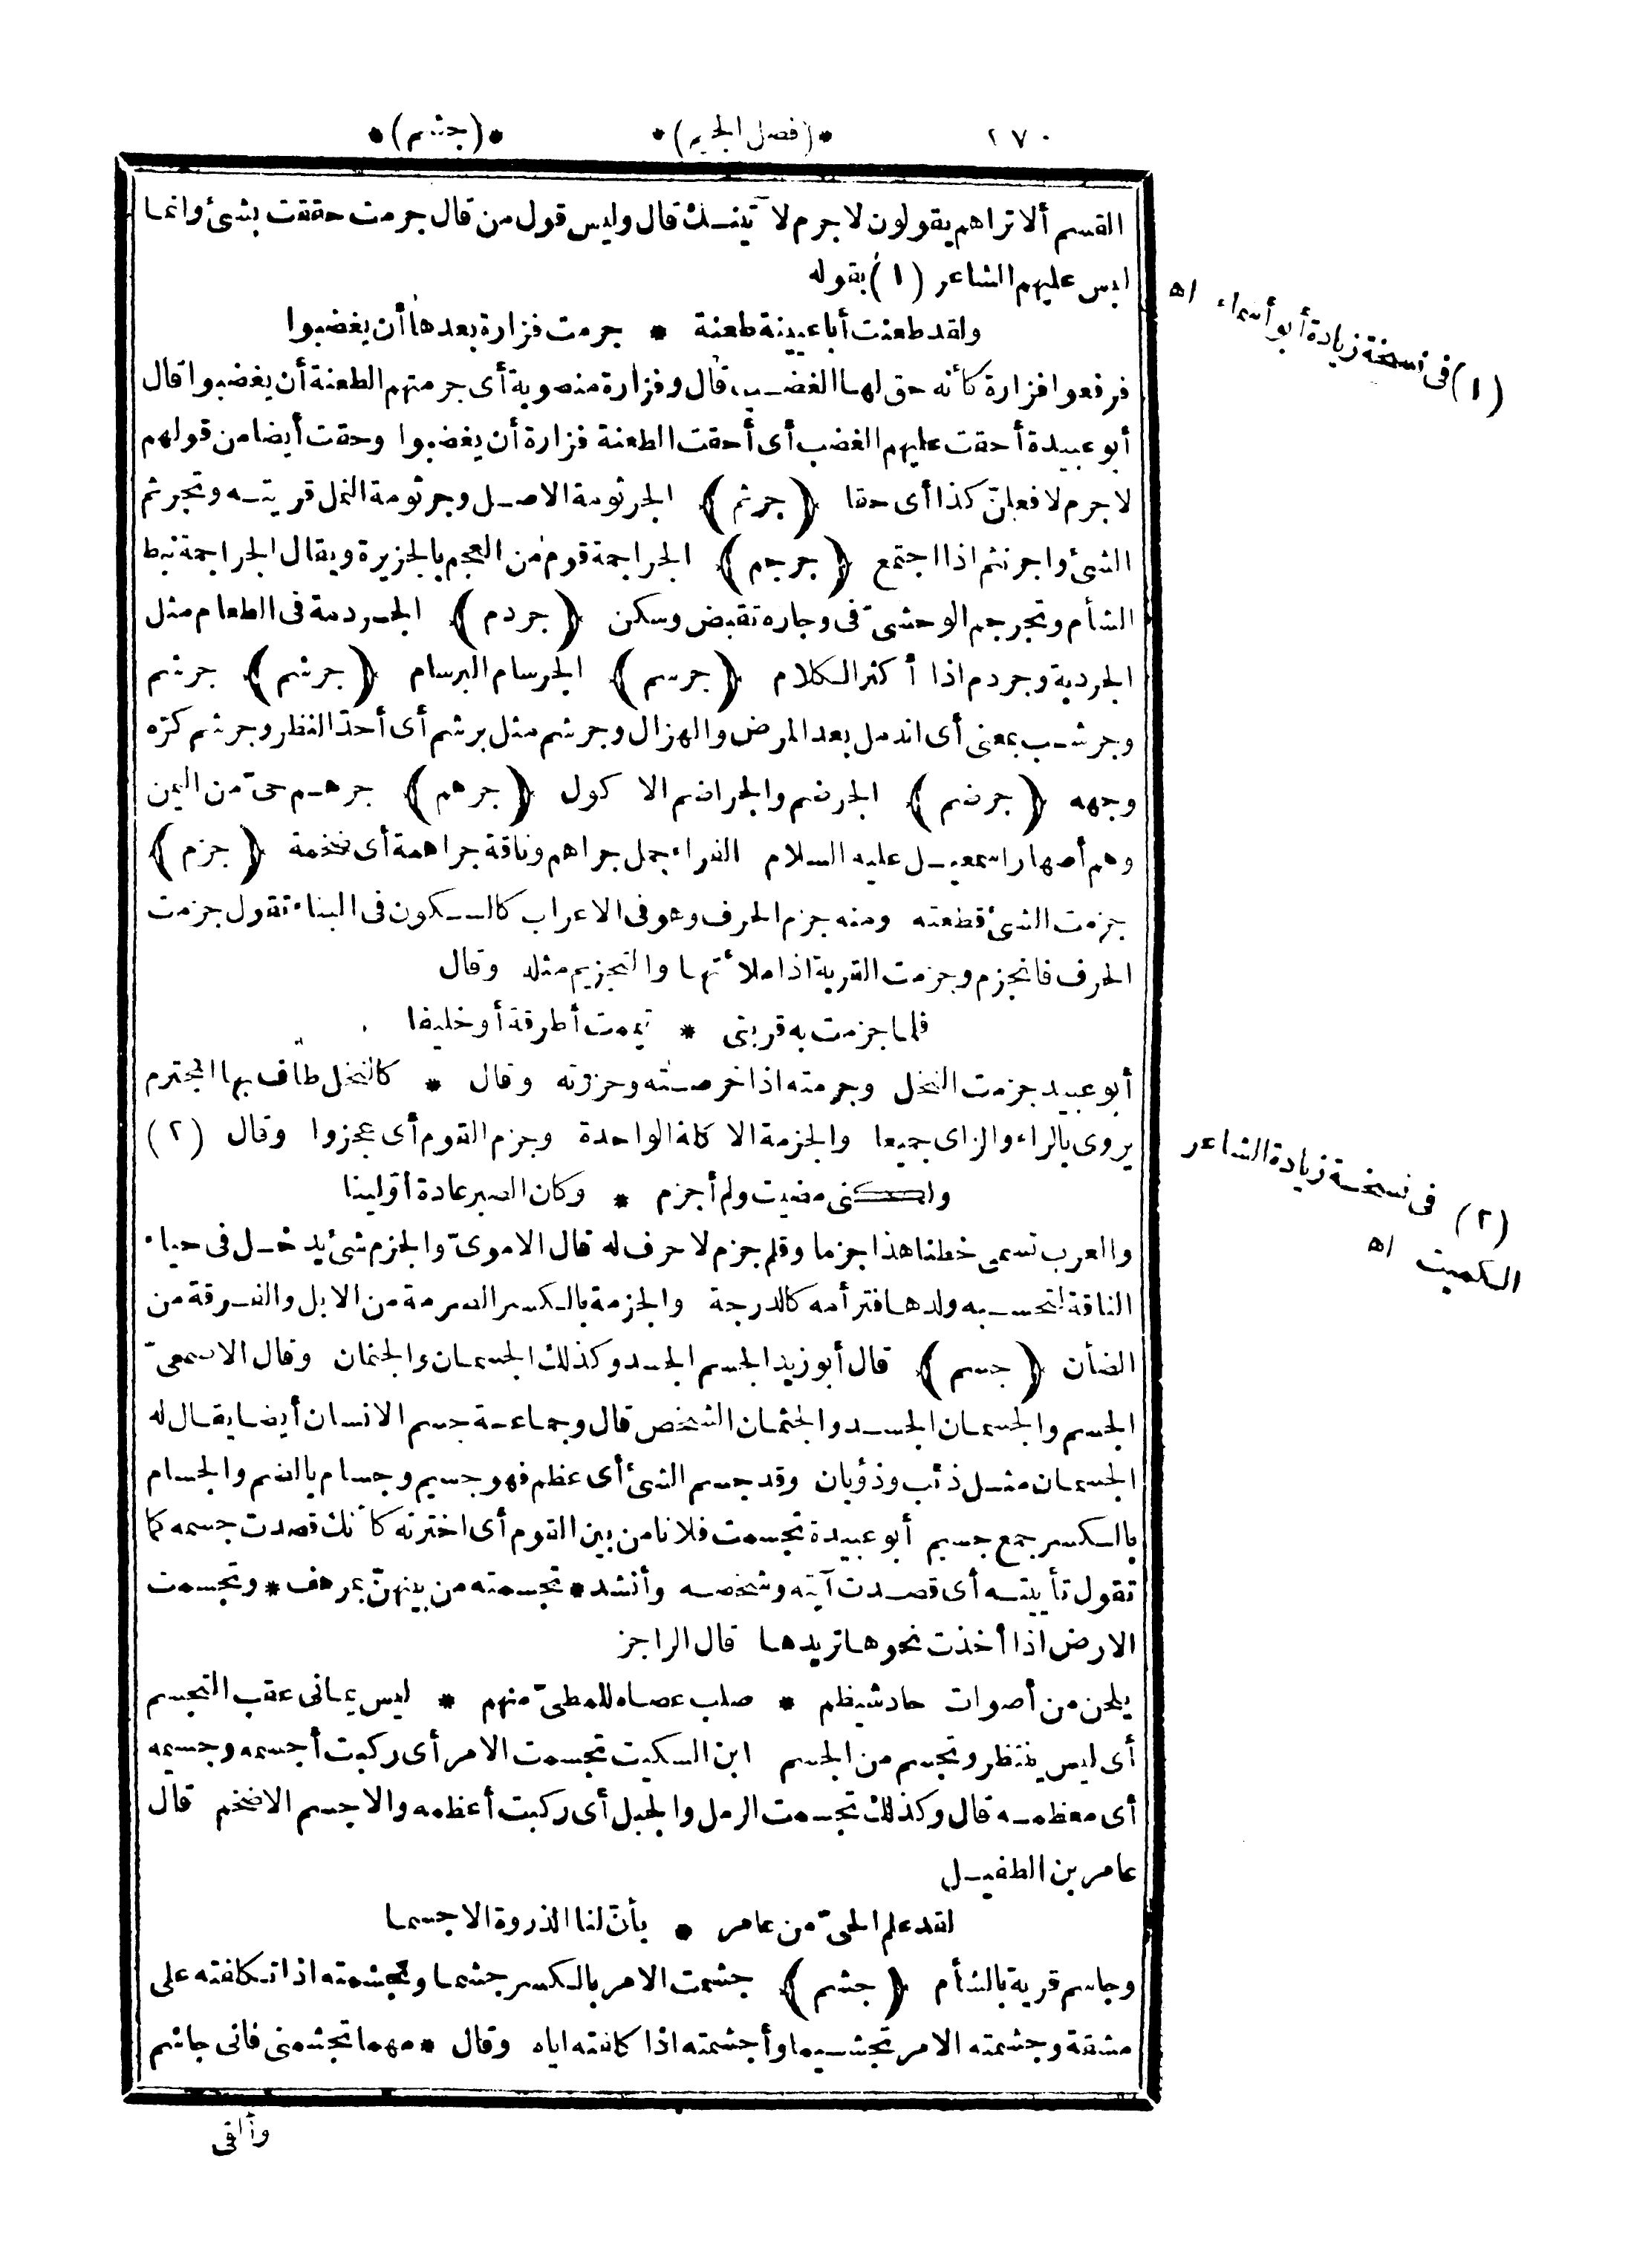 ٢٧٠ *(فصل الجيم)* *(جشم)*
القسم ألا تراهم يقولون لا جرم لا تينك قال وليس قول من قال جرمت حققت بشئ وانما
لبس عليهم الشاعر (١) بقوله
ولقد طعنت أبا عيينة طعنة * جرمت فزارة بعدها أن يغضبوا
فرفعوا فزارة كأنه حق لها الغضب قال وفزارة منصوبة أى جرمتهم الطعنة أن يغضبوا قال
أبو عبيدة أحقت عليهم الغضب أى أحقت الطعنة فزارة أن يغضبوا وحقت أيضا من قولهم
لا جرم لافعلنّ كذا أى حقا ﴿جرثم﴾ الجرثومة الاصل وجرثومة النمل قريته وتجرثم
الشئ واجرنثم اذا اجتمع ﴿جرجم﴾ الجراجمة قوم من العجم بالجزيرة ويقال الجراجمة نبط
الشأم وتجرجم الوحشىّ فى وجاره تقبض وسكن ﴿جردم﴾ الجردمة فى الطعام مثل
الجردبة وجردم اذا أكثر الكلام ﴿جرسم﴾ الجرسام البرسام ﴿جرشم﴾ جرشم
وجرشب بمعنى أى اندمل بعد المرض والهزال وجرشم مثل برشم أى أحدّ النظر وجرشم كرّه
وجهه ﴿جرضم﴾ الجرضم والجراضم الاكول ﴿جرهم﴾ جرهم حىّ من اليمن
وهم أصهار اسمعيل عليه السلام الفراء جمل جراهم وناقة جراهمة أى ضخمة ﴿جزم﴾
جزمت الشئ قطعته ومنه جزم الحرف وهو فى الاعراب كالسكون فى البناء تقول جزمت
الحرف فانجزم وجزمت القربة اذا ملأتها والتجزيم مثله وقال
فلما جزمت به قربتى * تيممت أطرقة أو خليفا
أبو عبيد جزمت النخل وجرمته اذا خرصته وحزرته وقال * كالنخل طاف بها المجترم
يروى بالراء والزاى جميعا والجزمة الاكلة الواحدة وجزم القوم أى عجزوا وقال (٢)
ولكنى مضيت ولم أجزم * وكان الصبر عادة أوّلينا
والعرب تسمى خطنا هذا جزما وقلم جزم لا حرف له قال الاموىّ والجزم شئ يدخل فى حياء
الناقة لتحسبه ولدها فترأمه كالدرجة والجزمة بالكسر الصرمة من الابل والفرقة من
الضأن ﴿جسم﴾ قال أبو زيد الجسم الجسد وكذلك الجسمان والجثمان وقال الاصمعىّ
الجسم والجسمان الجسد والجثمان الشخص قال وجماعة جسم الانسان أيضا يقال له
الجسمان مثل ذئب وذؤبان وقد جسم الشئ أى عظم فهو جسيم وجسام بالضم والجسام
بالكسر جمع جسيم أبو عبيدة تجسمت فلانا من بين القوم أى اخترته كأنك قصدت جسمه كما
تقول تأييته أى قصدت آيته وشخصه وأنشد * تجسمته من بينهنّ بمرهف * وتجسمت
الارض اذا أخذت نحوها تريدها قال الراجز
يلحن من أصوات حاد شيظم * صلب عصاه للمطىّ منهم * ليس يمانى عقب التجسم
أى ليس ينتظر وتجسم من الجسم ابن السكيت تجسمت الامر أى ركبت أجسمه وجسيمه
أى معظمه قال وكذلك تجسمت الرمل والجبل أى ركبت أعظمه والاجسم الاضخم قال
عامر بن الطفيل
لقد علم الحىّ من عامر * بأنّ لنا الذروة الاجسما
وجاسم قرية بالشأم ﴿جشم﴾ جشمت الامر بالكسر جشما وتجشمته اذا تكلفته على
مشقة وجشمته الامر تجشيما وأجشمته اذا كلفته اياه وقال * مهما تجشمنى فانى جاشم
وألقى
(١) فى نسخة زيادة أبو أسماء اه
(٢) فى نسخة زيادة الشاعر
الكميت اه